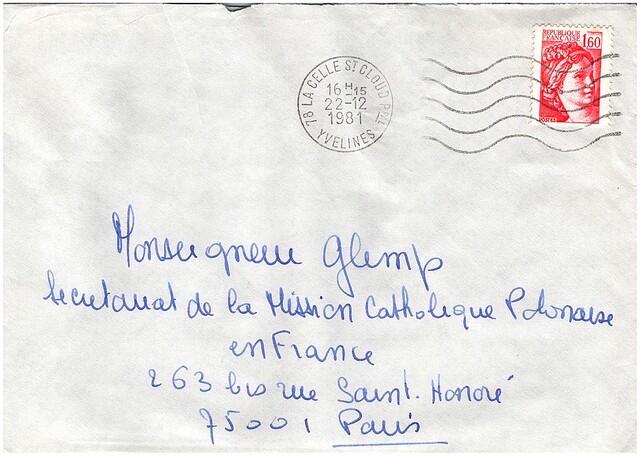 REPUBLIQUE
FRANÇAISE 1,60
78 LA CELLE ST CLOUD PPAL
16 H 15
22-12
1981
YVELINES
Monseigneur Glemp
Secretariat de la Mission Catholique Polonaise
en France
263 bis rue Saint. Honoré
75001 Paris